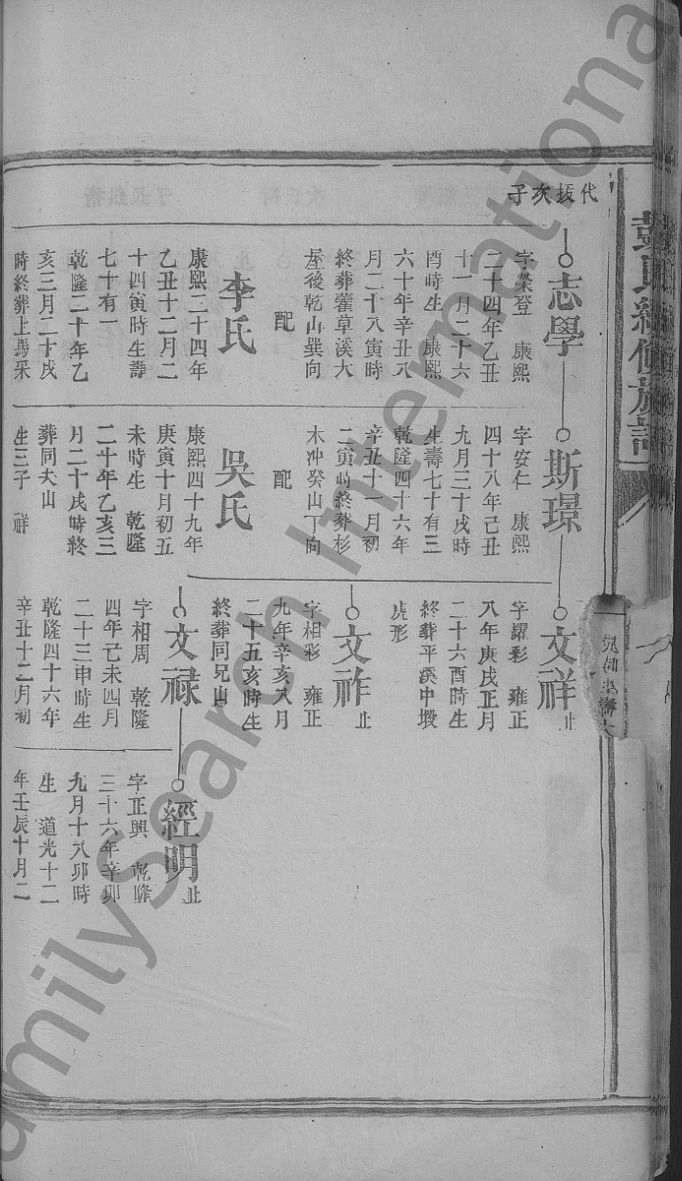 氏續修族譜
代扳次子
志學
字榮登 康熙
二十四年乙丑
十一月二十六
酉時生 康熙
六十年辛丑八
月二十八寅時
終葬藿草溪大
屋後乾山巽向
配
李氏
康熙二十四年
乙丑十二月二
十四寅時生壽
七十有一
乾隆二十年乙
亥三月二十戌
時終葬上馬采
斯璟
字安仁 康熙
四十八年己丑
九月三十戌時
生壽七十有三
乾隆四十六年
辛丑十一月初
二寅時終葬杉
木冲癸山丁向
配
吳氏
康熙四十九年
庚寅十月初五
未時生 乾隆
二十年乙亥三
月二十戌時終
葬同夫山
生三子 祥
文祥 止
字躍彩 雍正
八年庚戌正月
二十六酉時生
終葬平溪中塅
虎形
文祚 止
字相彩 雍正
九年辛亥八月
二十五亥時生
終葬同兄山
文祿
字相周 乾隆
四年己未四月
二十三申時生
乾隆四十六年
辛丑十二月初
經明 止
字正興 乾隆
三十六年辛卯
九月十八卯時
生 道光十二
年壬辰十月二
FamilySearch International